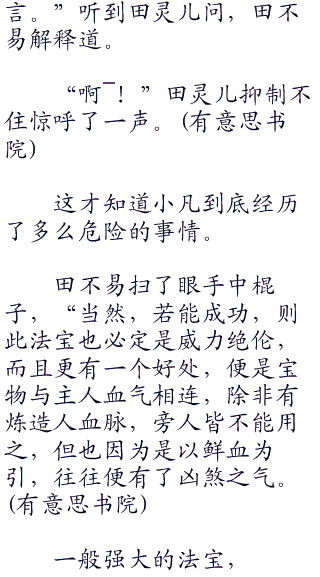 言。”听到田灵儿问，田不
易解释道。
“啊¯！”田灵儿抑制不
住惊呼了一声。(有意思书
院)
这才知道小凡到底经历
了多么危险的事情。
田不易扫了眼手中棍
子，“当然，若能成功，则
此法宝也必定是威力绝伦，
而且更有一个好处，便是宝
物与主人血气相连，除非有
炼造人血脉，旁人皆不能用
之，但也因为是以鲜血为
引，往往便有了凶煞之气。
(有意思书院)
一般强大的法宝，